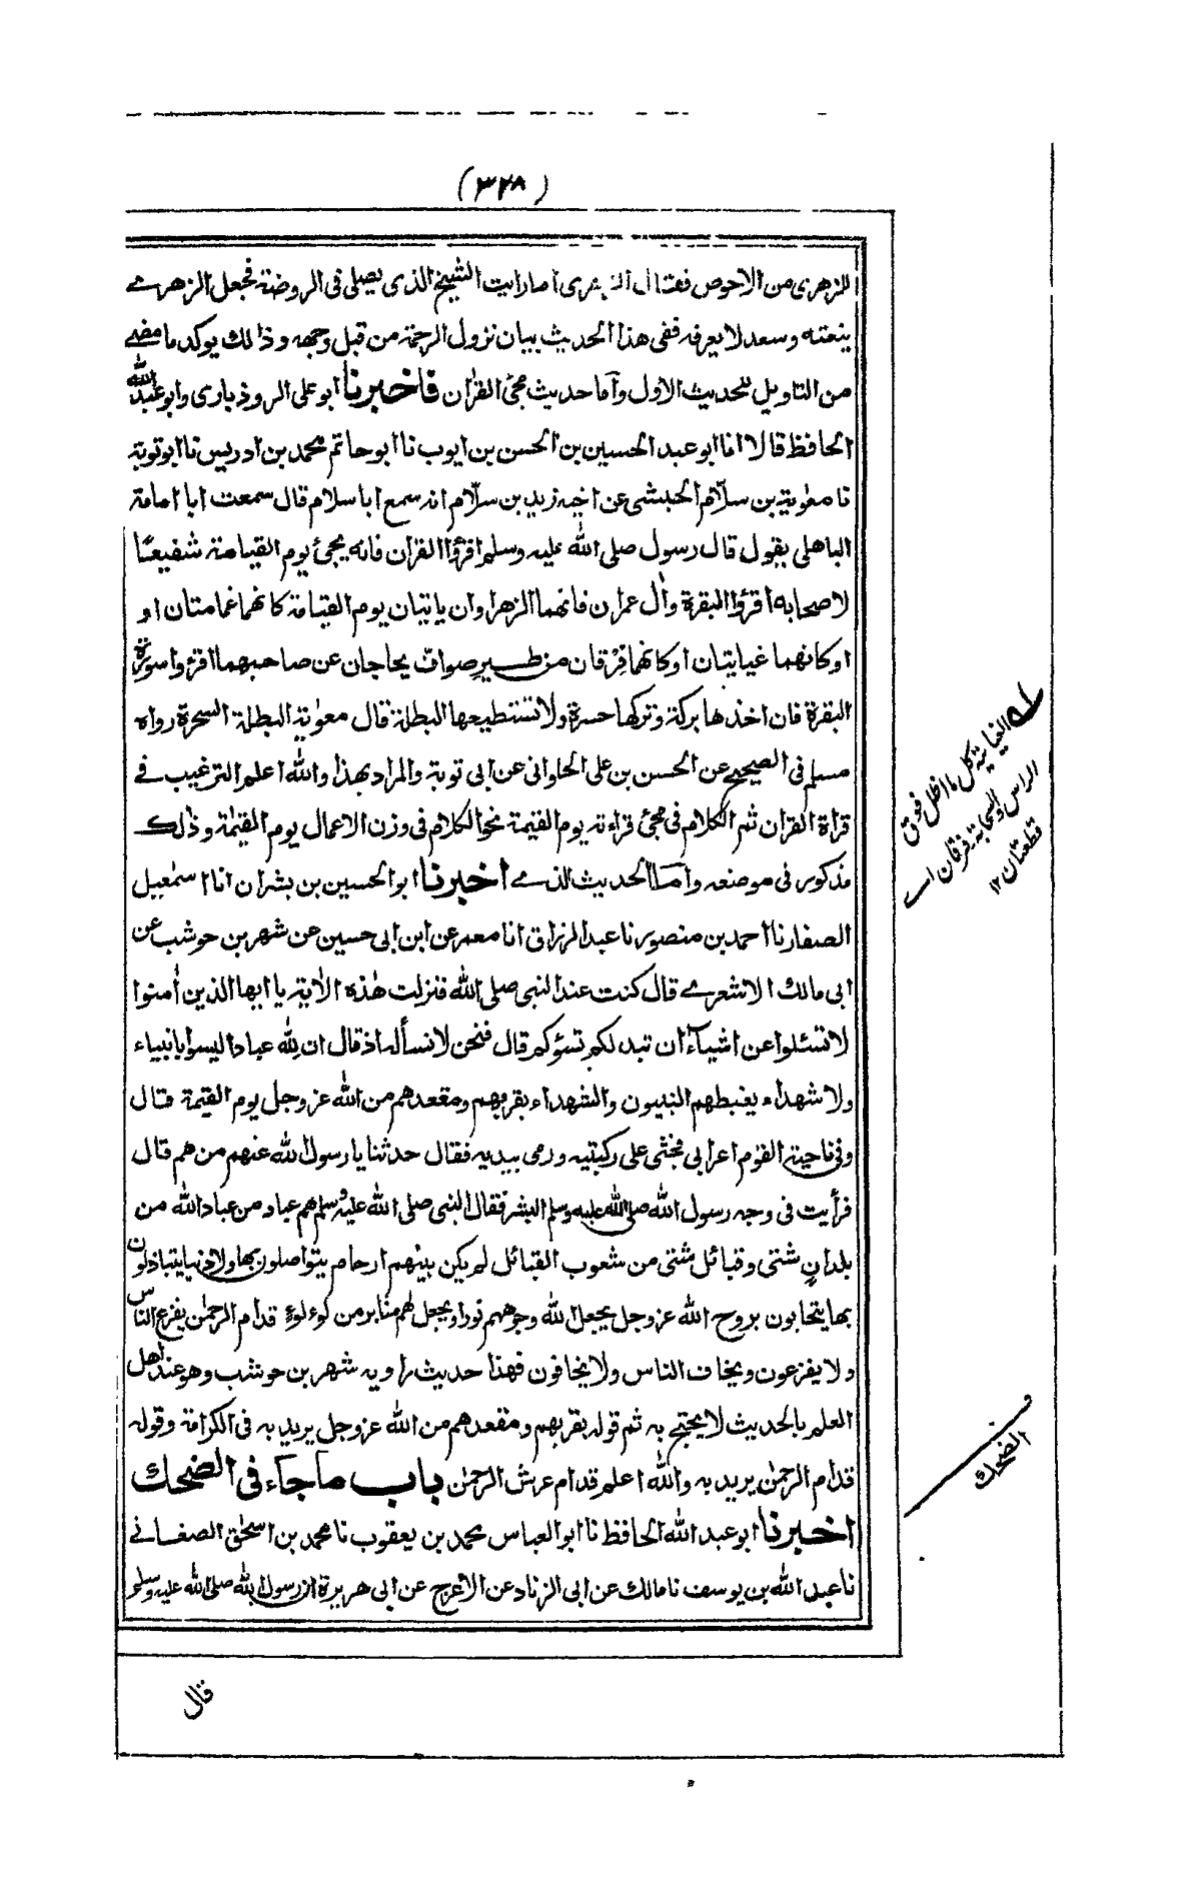 (٣٢٨)
للزهرى من الاحوص فقال الزهرى اما رايت الشيخ الذى يصلى فى الروضة فجعل الزهرى
ينعته وسعد لا يعرفه ففى هذا الحديث بيان نزول الرحمة من قبل وجهه وذالك يوكد ما مضى
من التاويل للحديث الاول وآما حديث مجئ القرٰان فاخبرنا ابو على الروذبارى وابو عبد الله
الحافظ قالا انا ابو عبد الحسين بن الحسن بن ايوب نا ابو حاتم محمد بن ادريس نا ابو توبة
نا معٰوية بن سلّام الحبشى عن اخيه زيد بن سلّام انه سمع ابا سلام قال سمعت ابا امامة
الباهلى يقول قال رسول صلى الله عليه وسلم اقرؤا القران فانه يجئ يوم القيامة شفيعًا
لاصحابه اقرؤا البقرة واٰل عمران فانهما الزهراوان ياتيان يوم القيامة كانهما غمامتان او
او كانهما غيايتان او كانهما فِرْقان من طيرٍ صوافّ يحاجان عن صاحبهما اقرؤا سورة
البقرة فان اخذها بركة وتركها حسرة ولا تستطيعها البطلة قال معٰوية البطلة السحرة رواه
مسلم فى الصحيح عن الحسن بن على الحلوانى عن ابى توبة والمراد بهذا والله اعلم الترغيب فى
قراة القران ثم الكلام فى مجئ قراءته يوم القيمة نحو الكلام فى وزن الاعمال يوم القيٰمة وذلك
مذكور فى موضعه وآما الحديث الذى اخبرنا ابو الحسين بن بشران انا اسمٰعيل
الصفار نا احمد بن منصور نا عبد الرزاق انا معمر عن ابن ابى حسين عن شهر بن حوشب عن
ابى مالك الاشعرى قال كنت عند النبى صلى الله فنزلت هٰذه الاٰية يا ايها الذين اٰمنوا
لا تسئلوا عن اشيآء ان تبد لكم تسؤكم قال فنحن لا نسأله اذ قال ان لله عبادا ليسوا بانبياء
ولا شهداء يغبطهم النبيون والشهداء بقربهم ومقعدهم من الله عز وجل يوم القيمة قال
وفى ناحية القوم اعرابى فجثى على ركبتيه ورمى بيديه فقال حدثنا يا رسول الله عنهم من هم قال
فرأيت فى وجه رسول الله صلى الله عليه وسلم البشر فقال النبى صلى الله عليه وسلم هم عباد من عباد الله من
بلدانٍ شتى وقبائل شتى من شعوب القبائل لم يكن بينهم ارحام يتواصلون بها ولا دنيا يتباذلون
بها يتحابون بروح الله عز وجل يجعل الله وجوههم نورا ويجعل لهم منابر من لوءلوءٍ قدام الرحمٰن يفزع الناس
ولا يفزعون ويخاف الناس ولا يخافون فهذا حديث راويه شهر بن حوشب وهو عند اهل
العلم بالحديث لا يحتج به ثم قوله بقربهم ومقعدهم من الله عز وجل يريد به فى الكرامة وقوله
قدام الرحمٰن يريد به والله اعلم قدام عرش الرحمٰن باب ماجآء فى الضحك
اخبرنا ابو عبد الله الحافظ نا ابو العباس محمد بن يعقوب نا محمد بن اسحٰق الصغانى
نا عبد الله بن يوسف نا مالك عن ابى الزناد عن الاعرج عن ابى هريرة ان رسول الله صلى الله عليه وسلم
قال
له الغياية كل ما اظل فوق
الراس والسحابة فرقان اى
قطعتان ١٢
الضحك